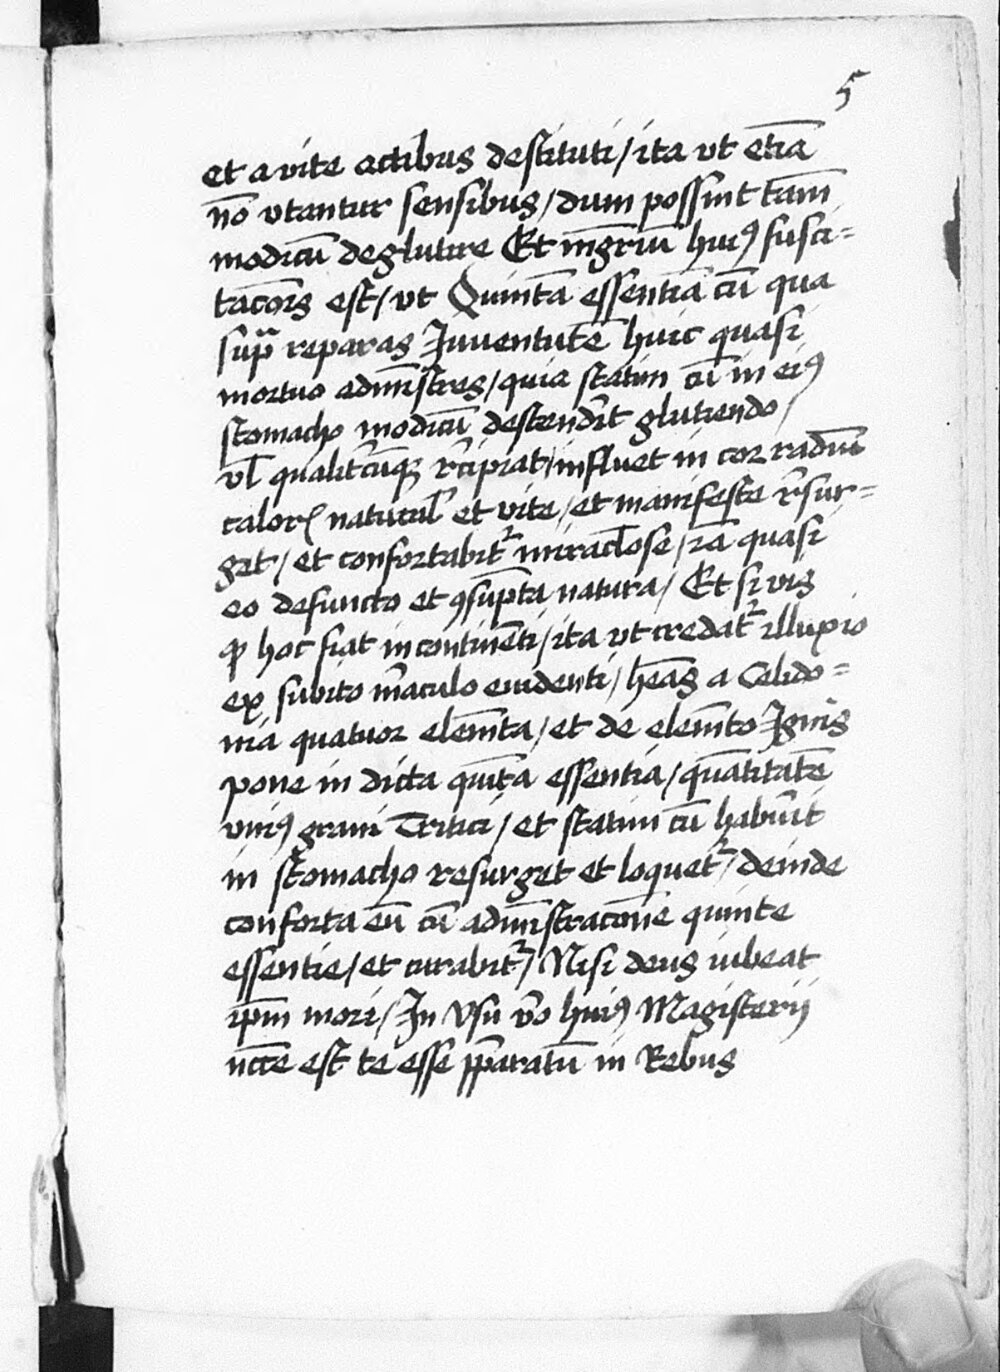 5
et a vite actibus destituti / ita vt etiā
nō vtantur sensibus / dum possint tam̄
modicū deglutire Et mḡriū huiꝰ susci=
tacōis est / vt Quintā essentiā cū qua
sup̄ᵃ reparas Juuentutē huic quasi
mortuo admīstres / quia statim cū in eiꝰ
stomacho modicū descendīt glutiendo /
vl̄ qualit̄cūqꝫ r̄cipiat / influet in cor radiū
calorꝭ natural̄ et vite / et manifeste r̄sur=
get / et confortabit᷑ miracl̄ose / iā quasi
eo defuncto et ꝯsūpta natura / Et si vis
ꝙ hoc fiat in contin̄eti / ita vt credat᷑ illuxio
ex subito m̄aculo euidenti / hēas a Celido=
nia quatuor elem̄ta / et de elem̄to Ignis
pone in dicta quīta essentia / quātitatē
vniꝰ grani Tritici / et statim cū habuīt
in stomacho resurget et loquet᷑ / deinde
conforta eū cū admīstracōne quinte
essentie / et curabit᷑ / Nisi deus iubeat
ip̄m mori / In Vsu v̄o huiꝰ Magisterij
nc̄ce est te esse pp̄aratū in Rebus